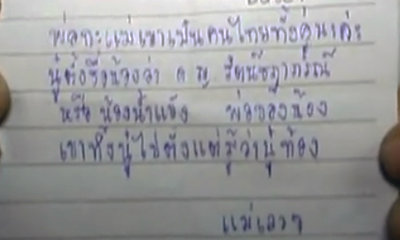 พ่อกะแม่เขาเป็นคนไทยทั้งคู่นะค่ะ
นู๋ตั้งชื่อน้องว่า ด ญ
หรือ น้องน้ำแข็ง พ่อของน้อง
เขาทิ้งนู๋ไปตั้งแต่รู้ว่านู๋ท้อง
แม่เลวๆ